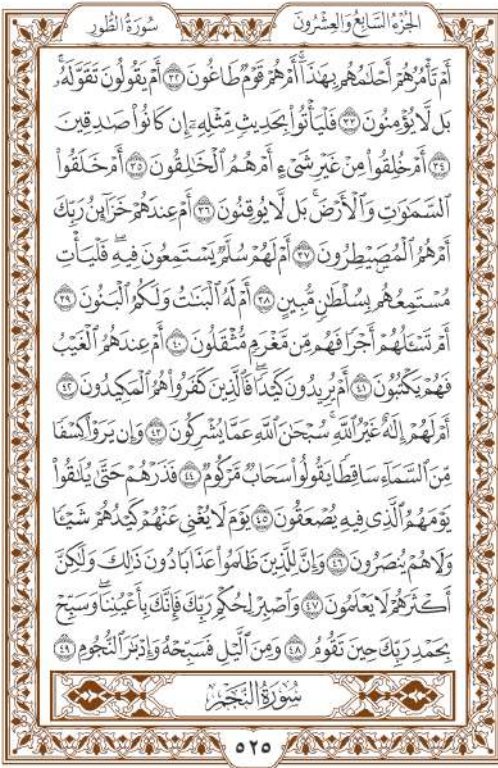 الجُزْءُ السَّابِعُ وَالعِشْرُونَ سُورَةُ الطُّورِ
أَمْ تَأْمُرُهُمْ أَحْلَٰمُهُم بِهَٰذَآ ۚ أَمْ هُمْ قَوْمٌ طَاغُونَ ٣٢ أَمْ يَقُولُونَ تَقَوَّلَهُۥ ۚ
بَل لَّا يُؤْمِنُونَ ٣٣ فَلْيَأْتُوا۟ بِحَدِيثٍ مِّثْلِهِۦٓ إِن كَانُوا۟ صَٰدِقِينَ
٣٤ أَمْ خُلِقُوا۟ مِنْ غَيْرِ شَىْءٍ أَمْ هُمُ ٱلْخَٰلِقُونَ ٣٥ أَمْ خَلَقُوا۟
ٱلسَّمَٰوَٰتِ وَٱلْأَرْضَ ۚ بَل لَّا يُوقِنُونَ ٣٦ أَمْ عِندَهُمْ خَزَآئِنُ رَبِّكَ
أَمْ هُمُ ٱلْمُصَۣيْطِرُونَ ٣٧ أَمْ لَهُمْ سُلَّمٌ يَسْتَمِعُونَ فِيهِ ۖ فَلْيَأْتِ
مُسْتَمِعُهُم بِسُلْطَٰنٍ مُّبِينٍ ٣٨ أَمْ لَهُ ٱلْبَنَٰتُ وَلَكُمُ ٱلْبَنُونَ ٣٩
أَمْ تَسْـَٔلُهُمْ أَجْرًا فَهُم مِّن مَّغْرَمٍ مُّثْقَلُونَ ٤٠ أَمْ عِندَهُمُ ٱلْغَيْبُ
فَهُمْ يَكْتُبُونَ ٤١ أَمْ يُرِيدُونَ كَيْدًا ۖ فَٱلَّذِينَ كَفَرُوا۟ هُمُ ٱلْمَكِيدُونَ ٤٢
أَمْ لَهُمْ إِلَٰهٌ غَيْرُ ٱللَّهِ ۚ سُبْحَٰنَ ٱللَّهِ عَمَّا يُشْرِكُونَ ٤٣ وَإِن يَرَوْا۟ كِسْفًا
مِّنَ ٱلسَّمَآءِ سَاقِطًا يَقُولُوا۟ سَحَابٌ مَّرْكُومٌ ٤٤ فَذَرْهُمْ حَتَّىٰ يُلَٰقُوا۟
يَوْمَهُمُ ٱلَّذِى فِيهِ يُصْعَقُونَ ٤٥ يَوْمَ لَا يُغْنِى عَنْهُمْ كَيْدُهُمْ شَيْـًٔا
وَلَا هُمْ يُنصَرُونَ ٤٦ وَإِنَّ لِلَّذِينَ ظَلَمُوا۟ عَذَابًا دُونَ ذَٰلِكَ وَلَٰكِنَّ
أَكْثَرَهُمْ لَا يَعْلَمُونَ ٤٧ وَٱصْبِرْ لِحُكْمِ رَبِّكَ فَإِنَّكَ بِأَعْيُنِنَا ۖ وَسَبِّحْ
بِحَمْدِ رَبِّكَ حِينَ تَقُومُ ٤٨ وَمِنَ ٱلَّيْلِ فَسَبِّحْهُ وَإِدْبَٰرَ ٱلنُّجُومِ ٤٩
سُورَةُ النَّجْمِ
٥٢٥